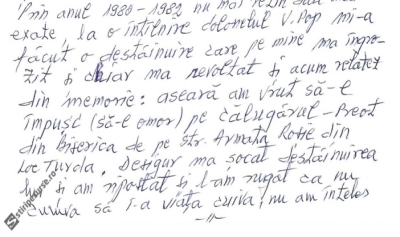 Prin anul 1980-1982 nu mai rețin
exate, la o întîlnire colonelul V. Pop mi-a
făcut o destăinuire care pe mine ma îngro-
zit și chiar ma revoltat și acum relatez
din memorie: aseară am vrut să-l
împușc (să-l omor) pe călugărul-Preot
din Biserica de pe str. Armata Roșie din
loc Turda. Desigur ma șocat destăinuirea
lui și am ripostat și l-am rugat ca nu
cumva să i-a viața cuiva, nu am înțeles
-11-
stiridecluse.ro